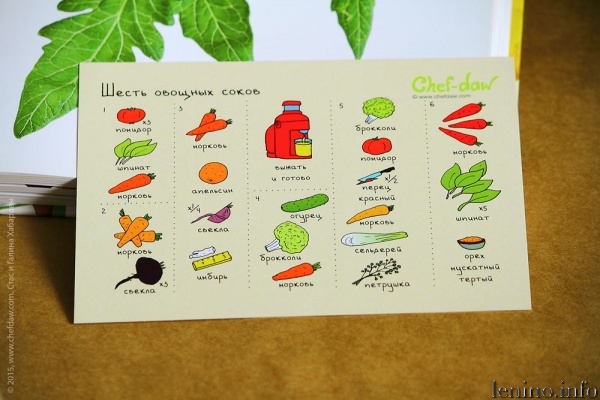 Шесть овощных соков
Chef-daw
© www.chefdaw.com
1
x3
помидор
шпинат
морковь
2
морковь
x3
свекла
3
морковь
апельсин
x1/4
свекла
имбирь
выжать
и готово
4
огурец
брокколи
морковь
5
брокколи
помидор
x1/2
перец
красный
морковь
сельдерей
петрушка
6
морковь
x5
шпинат
орех
мускатный
тертый
© 2015, www.chefdaw.com, Стас и Галина Хабаровы
lenino.info